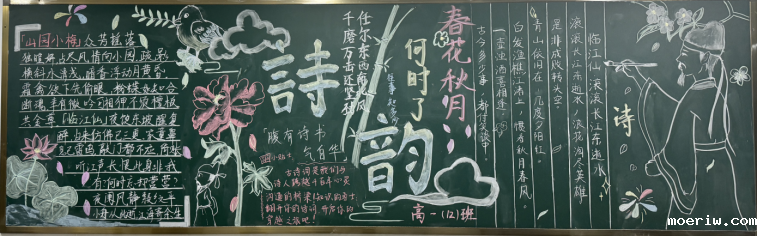 山园小梅
众芳摇落
独暄妍占尽风情向小园疏影
横斜水清浅暗香浮动月黄昏
霜禽欲下先偷眼粉蝶如知合
断魂幸有微吟可相狎不须檀板
共金尊「临江仙」夜饮东坡醒复
醉归来仿佛已三更家童鼻
息已雷鸣敲门都不应倚杖
听江声长恨此身非我
有何时忘却营营?
夜阑风静縠纹平
小舟从此逝江海寄余生
詩
韵
「腹有诗书
气自华」
千磨万击还坚劲
任尔东西南北风
春花秋月
何时了
往事知多少
古诗词是我们与
诗人跨越千百年心灵
高一(12)班
临江仙 滚滚长江东逝水
滚滚长江东逝水,浪花淘尽英雄。
是非成败转头空。
青山依旧在,几度夕阳红。
白发渔樵江渚上,惯看秋月春风。
一壶浊酒喜相逢。
古今多少事,都付笑谈中。
诗
moeriw.com